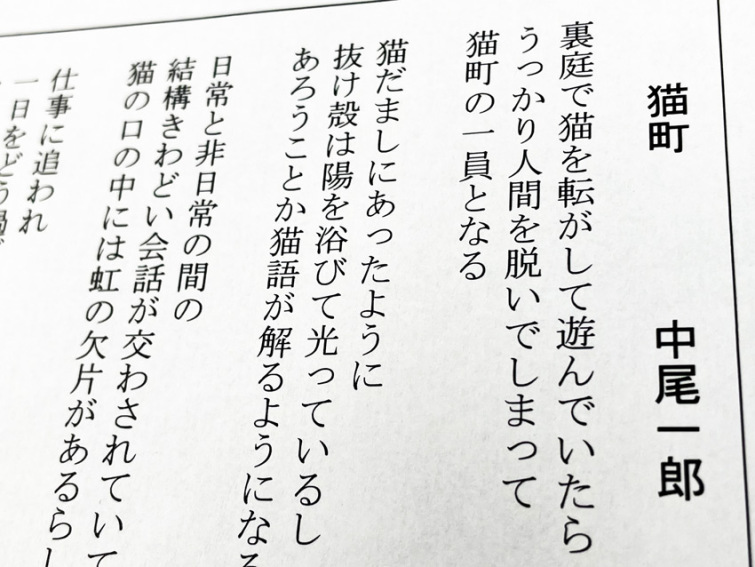 猫町
中尾一郎
裏庭で猫を転がして遊んでいたら
うっかり人間を脱いでしまって
猫町の一員となる
猫だましにあったように
抜け殻は陽を浴びて光っているし
あろうことか猫語が解るようになる
日常と非日常の間の
結構きわどい会話が交わされていて
猫の口の中には虹の欠片があるらし
仕事に追われ
一日をどう過ご